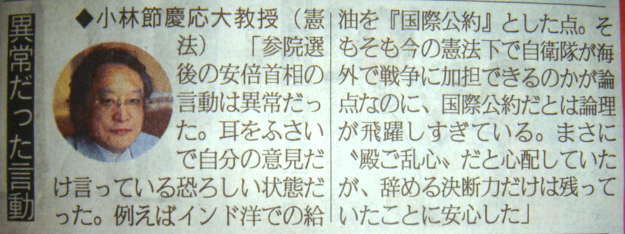 異常だった言動
◆小林節慶応大教授（憲
法）　「参院選
後の安倍首相の
言動は異常だっ
た。耳をふさい
で自分の意見だ
け言っている恐ろしい状態だ
った。例えばインド洋での給
油を『国際公約』とした点。そ
もそも今の憲法下で自衛隊が海
外で戦争に加担できるのかが論
点なのに、国際公約だとは論理
が飛躍しすぎている。まさに
〝殿ご乱心〟だと心配していた
が、辞める決断力だけは残って
いたことに安心した」